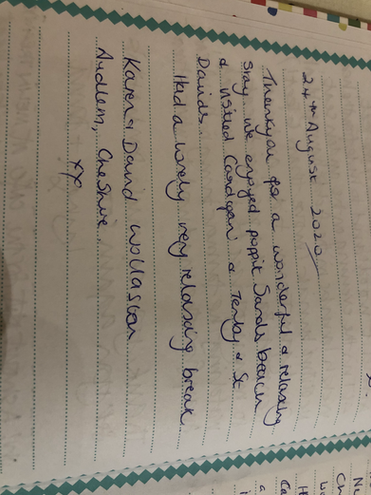 24th August 2020
Thankyou for a wonderful & relaxing
stay, we enjoyed poppit Sands beach
& visited Cardigan & Tenby & St
Davids.
Had a lovely very relaxing break
Karen & David Wollaston
Audlem, Cheshire.
xx